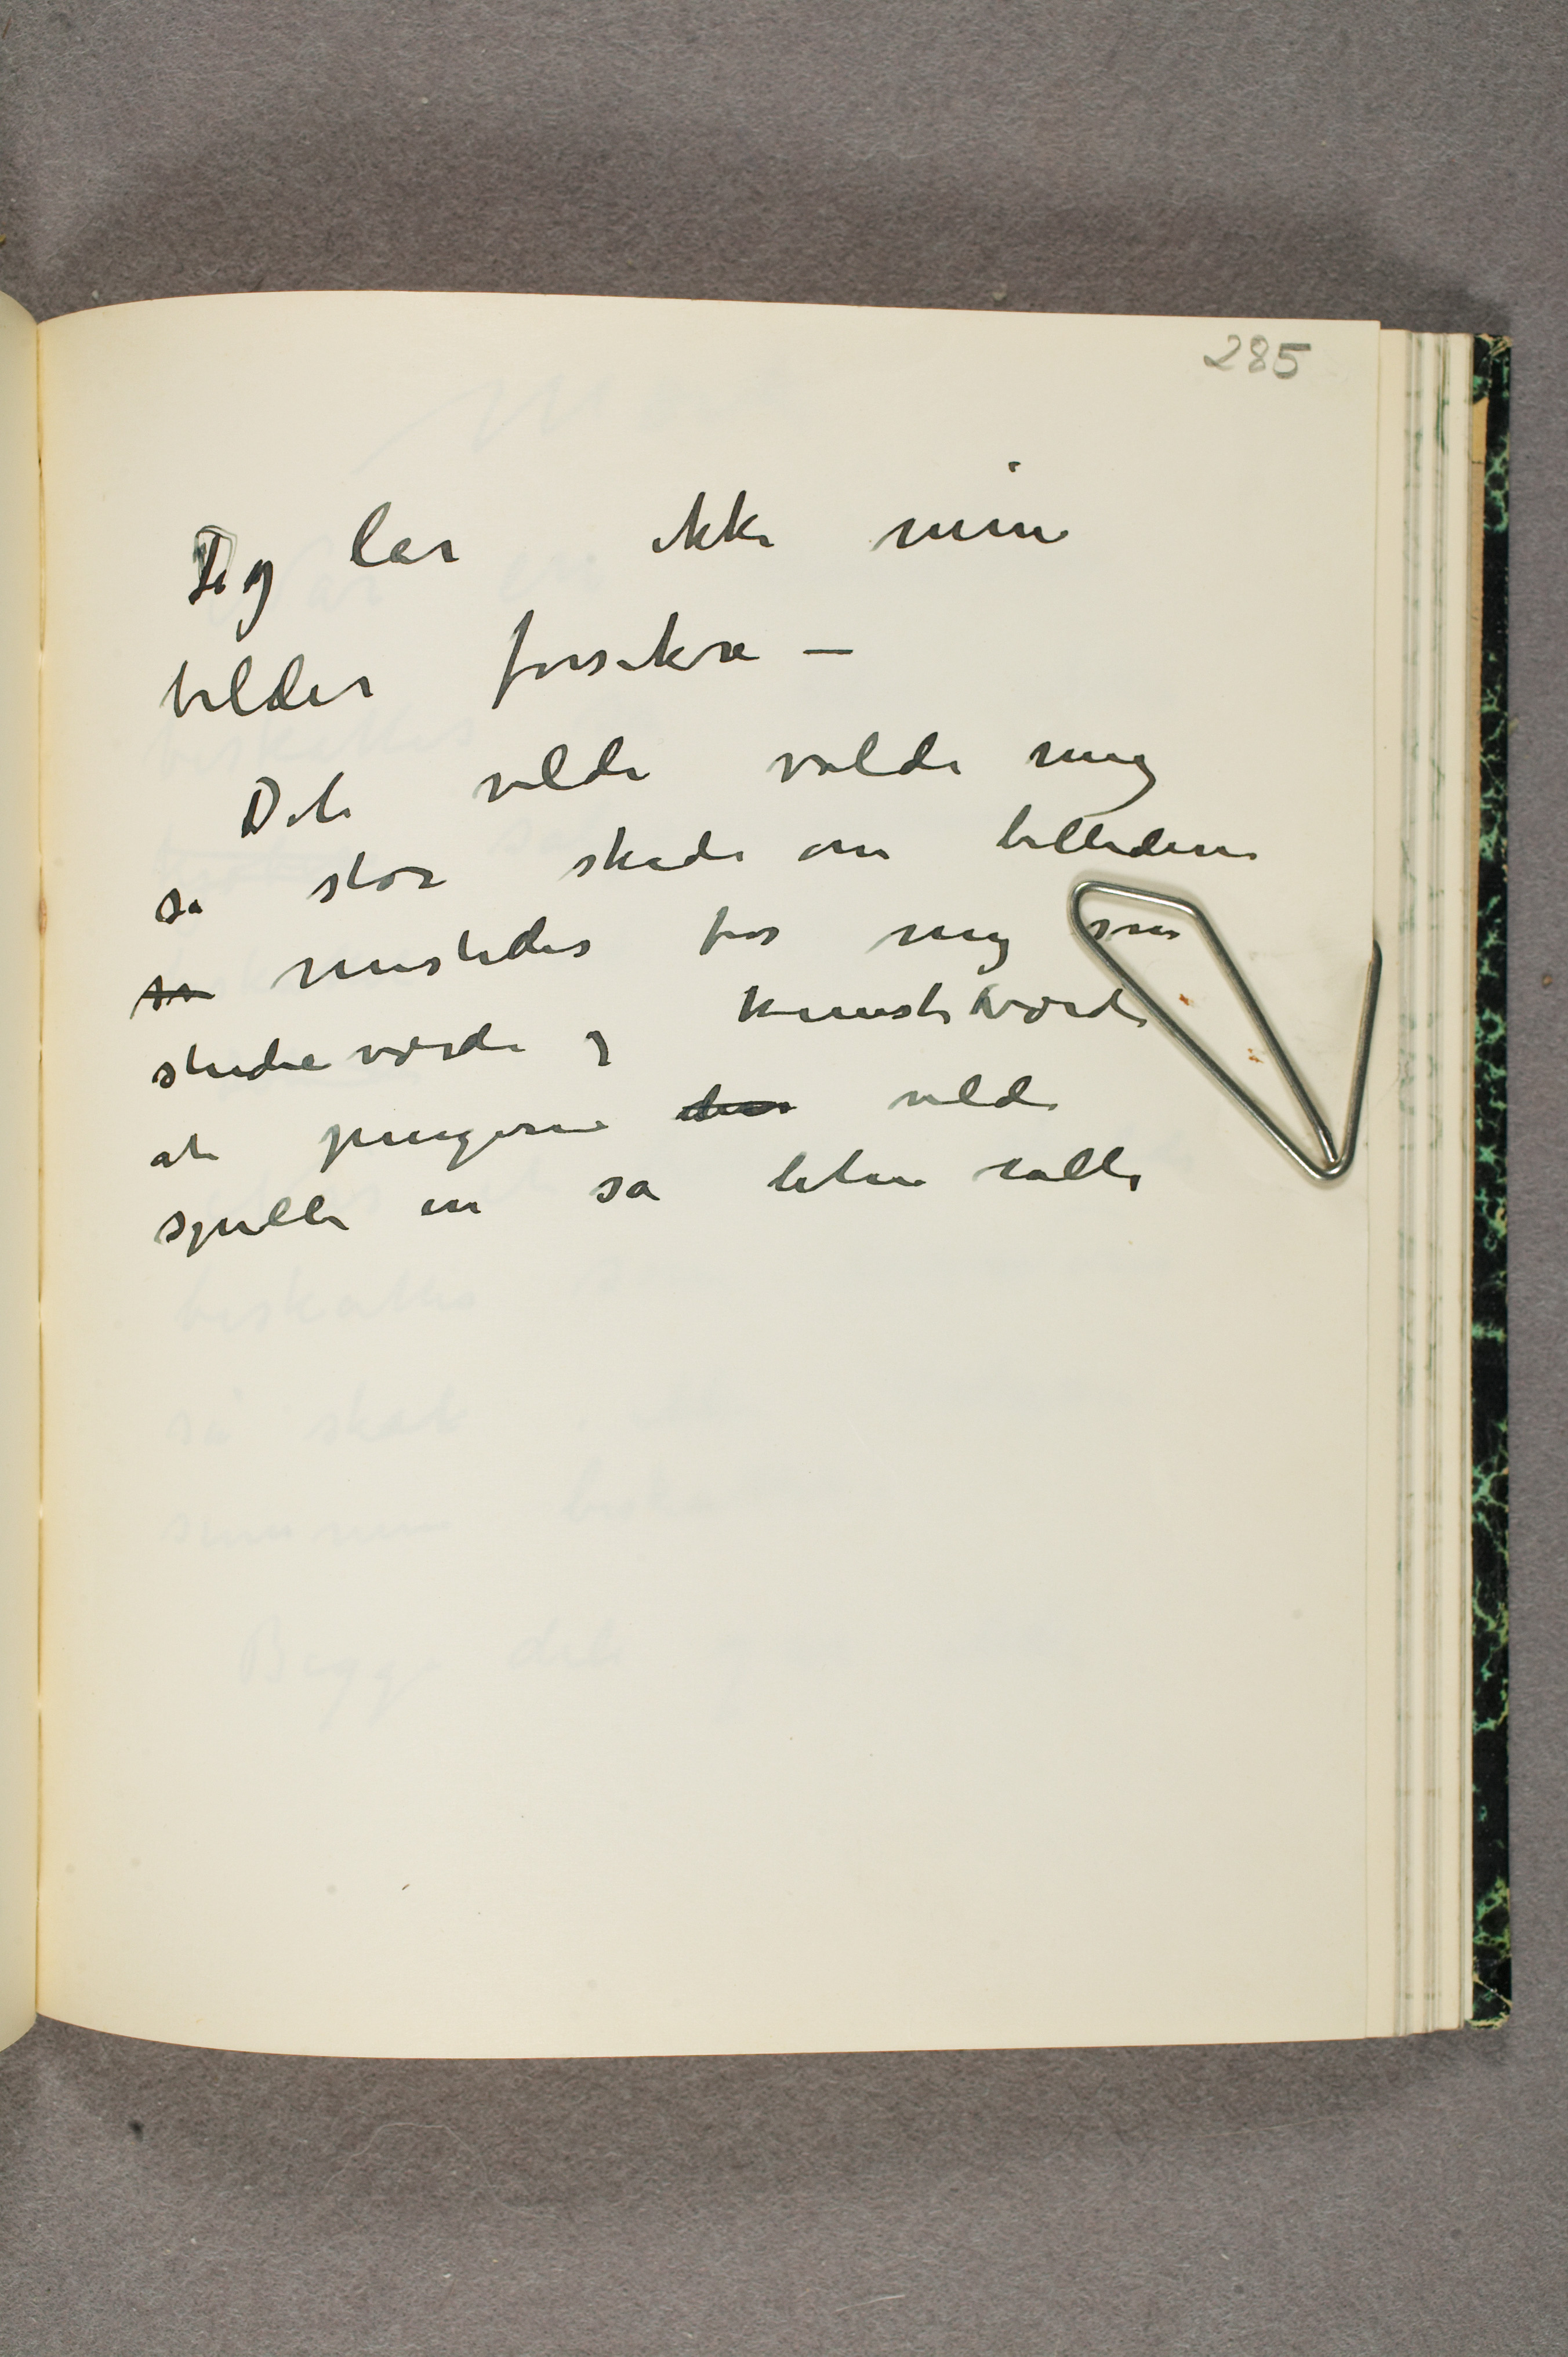 285
Jeg lar ikke mine
bilder forsikre —
Det vilde volde mig
så stor skade om billedene
so mistedes for mig som
studieværdi og kunstværdi
at pengene vilde
spille en så liten rolle